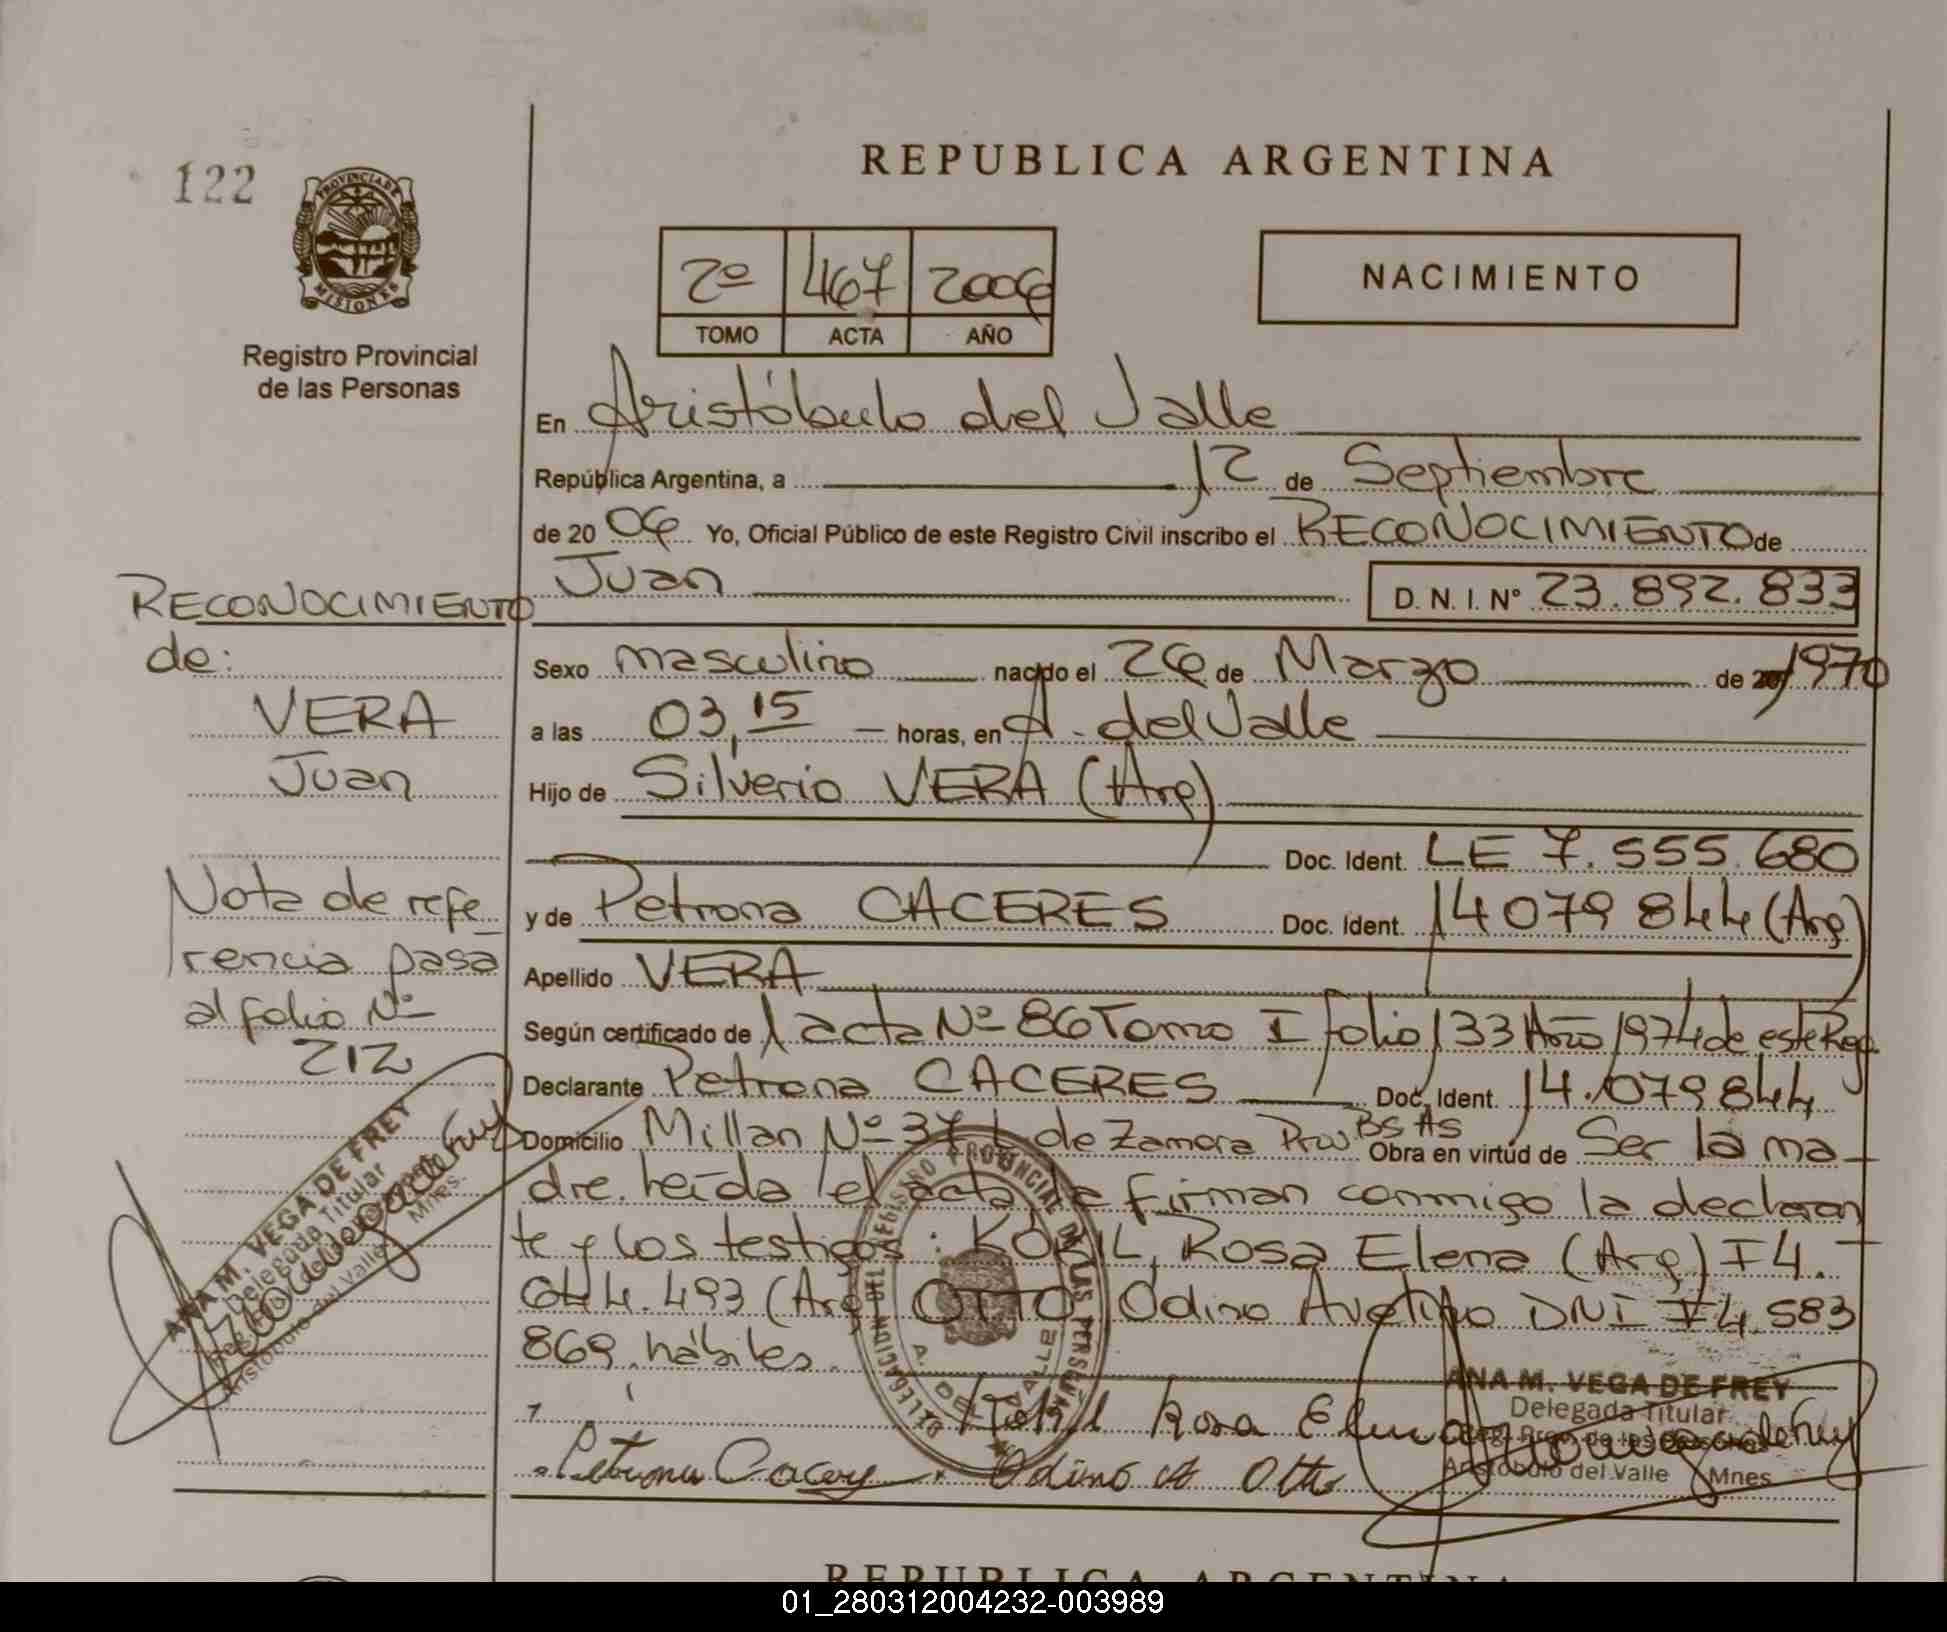 122
PROVINCIA DE
MISIONES
Registro Provincial
de las Personas
REPUBLICA ARGENTINA
2º 467 2006
TOMO ACTA AÑO
NACIMIENTO
En Aristóbulo del Valle
República Argentina, a 12 de Septiembre
de 2006 Yo, Oficial Público de este Registro Civil inscribo el RECONOCIMIENTO de
Juan D. N. I. Nº 23.892.833
Sexo masculino nacido el 26 de Marzo de 20 1970
a las 03,15 horas, en A. del Valle
Hijo de Silverio VERA (Arg)
Doc. Ident. LE 7.555.680
y de Petrona CACERES Doc. Ident. 14079844 (Arg)
Apellido VERA
Según certificado de 1 acta Nº 86 Tomo I folio 133 Año 1974 de este Reg.
Declarante Petrona CACERES Doc. Ident. 14.079844
Domicilio Millan Nº 37 L. de Zamora Prov BS AS Obra en virtud de Ser la ma-
dre. leída el acta la firman conmigo la declaran
te y los testigos: Rosa Elena (Arg) I4.-
644.493 (Arg) OTTO Odino Avelino DNI I4.583
869. hábiles.
Rosa Elena
Petrona Caceres Odino A Otto
ANA M. VEGA DE FREY
Delegada Titular
Reg. Prov. de las Personas
Aristóbulo del Valle Mnes
RECONOCIMIENTO
de:
VERA
Juan
Nota de refe-
rencia pasa
al folio Nº
212
ANA M. VEGA DE FREY
Delegada Titular
Aristóbulo del Valle Mnes.
DELEGACION DEL REGISTRO PROVINCIAL DE LAS PERSONAS
A. DEL VALLE
REPUBLICA ARGENTINA
01_280312004232-003989